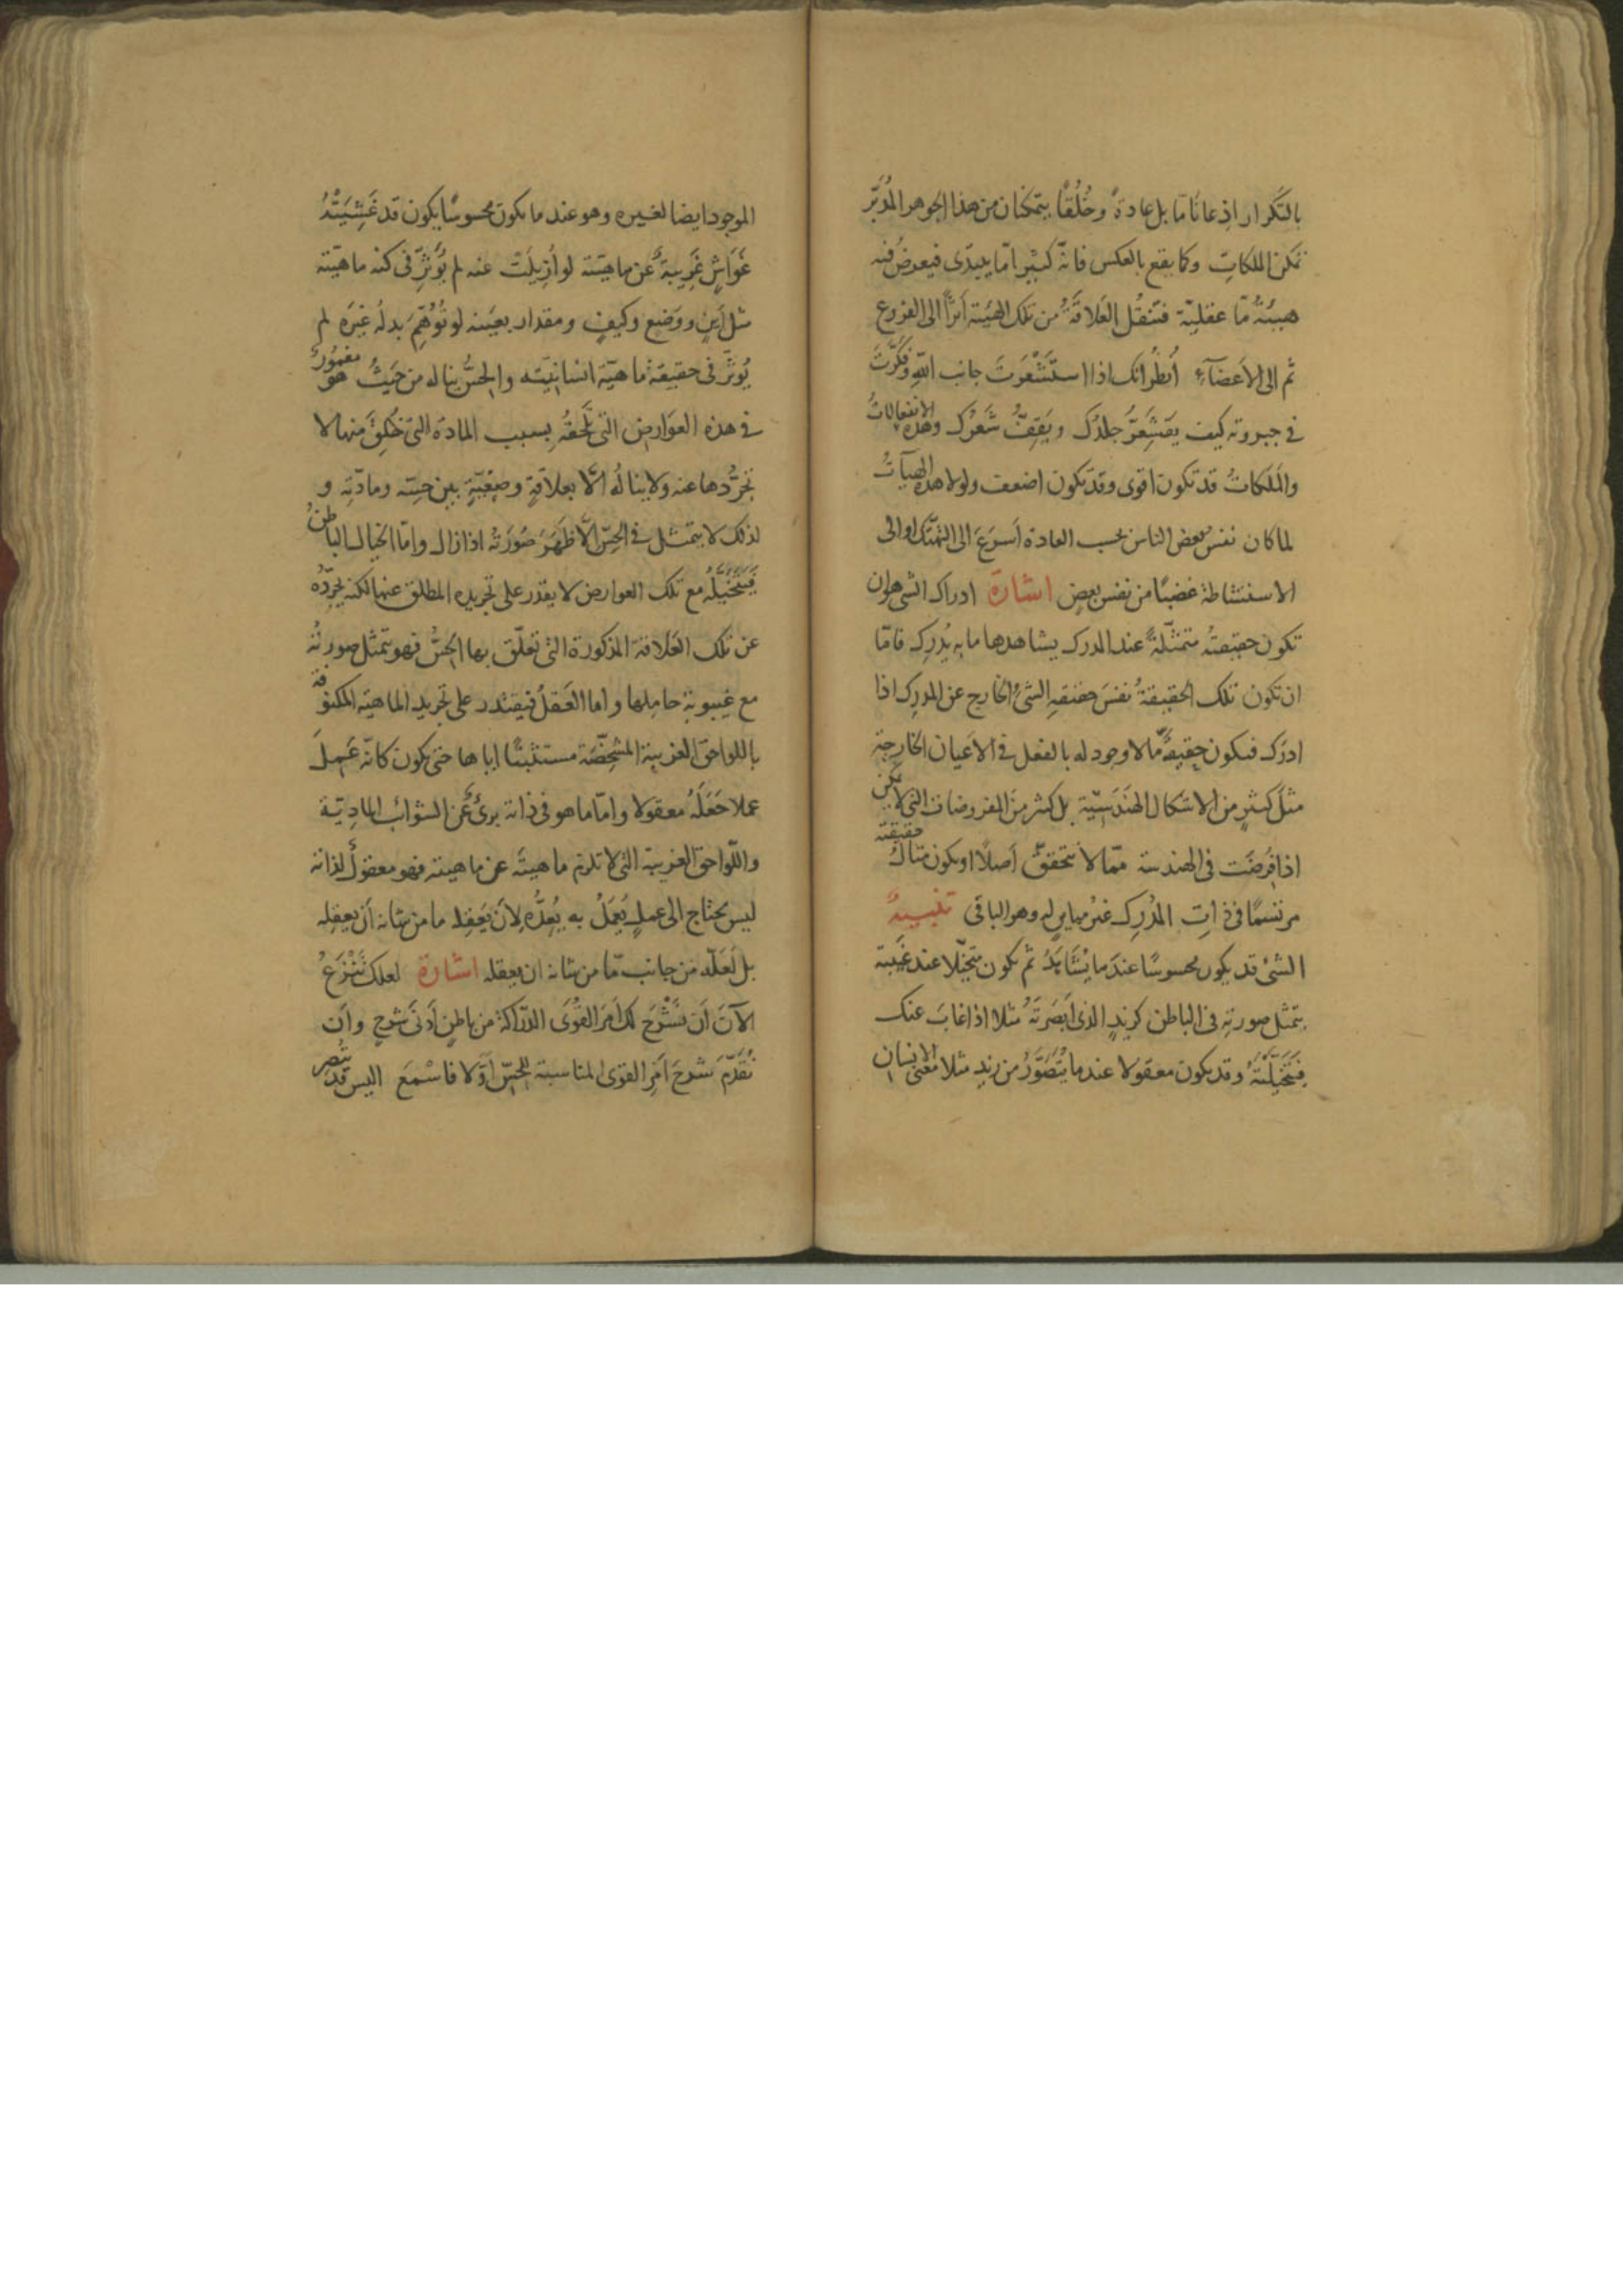 بالتكرار اذعانًا ما بل عادة وخُلُقًا يتمكنان من هذا الجوهر المُدَبِّر
تمكن الملكاتِ وكما يقع بالعكس فانّه كثيرا مّا يبتدى فيعرضُ فيه
هيئةٌ مّا عقليّة فتنقُل العَلاقةُ من تلك الهَيئة أثرًا الى الفروع
ثم الى الاَعضآءِ اُنظُر انّك اذا استَشعَرتَ جانب اللّهِ وفكَّرتَ
فى جبروته كيف يقشَعِرُّ جلدُك ويَقِفُّ شَعرُك وهذه الانفعالاتُ
والمَلَكاتُ قد تكون اقوى وقد تكون اضعف ولولا هذه الهيآتُ
لما كان نفسُ بعض الناس بحسب العادة اَسرَعَ الى التهتّك او الى
الاستشاطة غضبًا من نفس بعضٍ اشارة ادراك الشى هو ان
تكون حقيقتُه متمثّلةً عند المدرك يشاهدها ما به يُدرِك فامّا
ان تكون تلك الحقيقةُ نفسَ حقيقةِ الشئ الخارج عن المدرِك اذا
ادرَك فيكون حقيقةُ مّا لا وجود له بالفعل فى الاَعيان الخارجة
مثلَ كثيرٍ من الاشكال الهَندَسيّة بل كثير من المفروضات التى لا يمكن
اذا فُرِضَت فى الهندسة ممّا لا يتحقق أَصلًا او يكون مثالُ حقيقته
مرتسمًا فى ذاتِ المُدْرِك غيرُ مباينٍ له وهو الباقى تنبيهٌ
الشئ قد يكون محسوسًا عندَما يُشَاهَدُ ثم يكون متخيّلا عند غَيبَتِه
بتمثّل صورتِه فى الباطن كزيدٍ الذى اَبصَرتَهُ مثلا اذا غابَ عنك
فَتَخَيَّلتَهُ وقد يكون معقولا عندما يُتَصَوَّرُ من زيدٍ مثلا معنى الانسان
الموجود ايضا لغيره وهو عند ما يكون محسوسًا يكون قد غَشِيَتْهُ
غَوَاشٍ غَرِيبةٌ عن ماهيّته لو اُزِيلَتْ عنه لم يُؤَثِّر فى كنه ماهيّته
مثل اَينٍ ووَضعٍ وكيفٍ ومقدار بعينه لو تُوُهِّمَ بدلَه غيرَه لم
يُؤثِّر فى حقيقة ماهيّة انسانيّته والحِسُّ يناله من حَيثُ هو مغمورٌ
فى هذه العوارض التى تَلحقُه بسبب المادة التى خُلِقَ منها لا
يُجرِّدها عنه ولا ينالُه اِلّا بعلاقةٍ وضعيّةٍ بين حِسّه ومادّتِه و
لذلك لا يتمثل فى الحِسّ الظاهرِ صُورَتُه اذا زال وامّا الخيال الباطنُ
فيَتَخَيَّلُه مع تلك العوارض لا يقدر على تجريده المطلق عنها لكنه يجرّدُه
عن تلك العَلاقة المذكورة التى تعلّق بها الحِسُّ فهو يتمثّل صورتُه
مع غيبوبة حاملها واما العَقلُ فيقتدر على تجريد الماهيّة المكنوفة
باللواحق الغريبة المشخِّصَة مستثبتًا اياها حتى يكون كانّه عَمِلَ
عملا جَعَلَهُ معقولا وامّا ما هو فى ذاته برئٌ عن الشوائب الماديّة
واللّواحق الغريبة التى لا تلزم ماهيتَه عن ماهيته فهو معقولٌ لذاته
ليس يحتاج الى عملٍ يُعمَلُ به يُعِدُّه لِاَن يَعقِلَه ما من شانه أن يعقِله
بل لَعَلّه من جانب مّا من شانه ان يعقله اشارة لعلك تَنْزَعُ
الآنَ اَن نَشْرَحَ لك اَمرَ القُوَى الدرّاكة من باطنٍ اَدنَى شرحٍ واَن
نُقَدِّمَ شرحَ اَمرِ القوى المناسبة للحِسّ اَوّلا فاسْمَع اليس قد تُبصِر